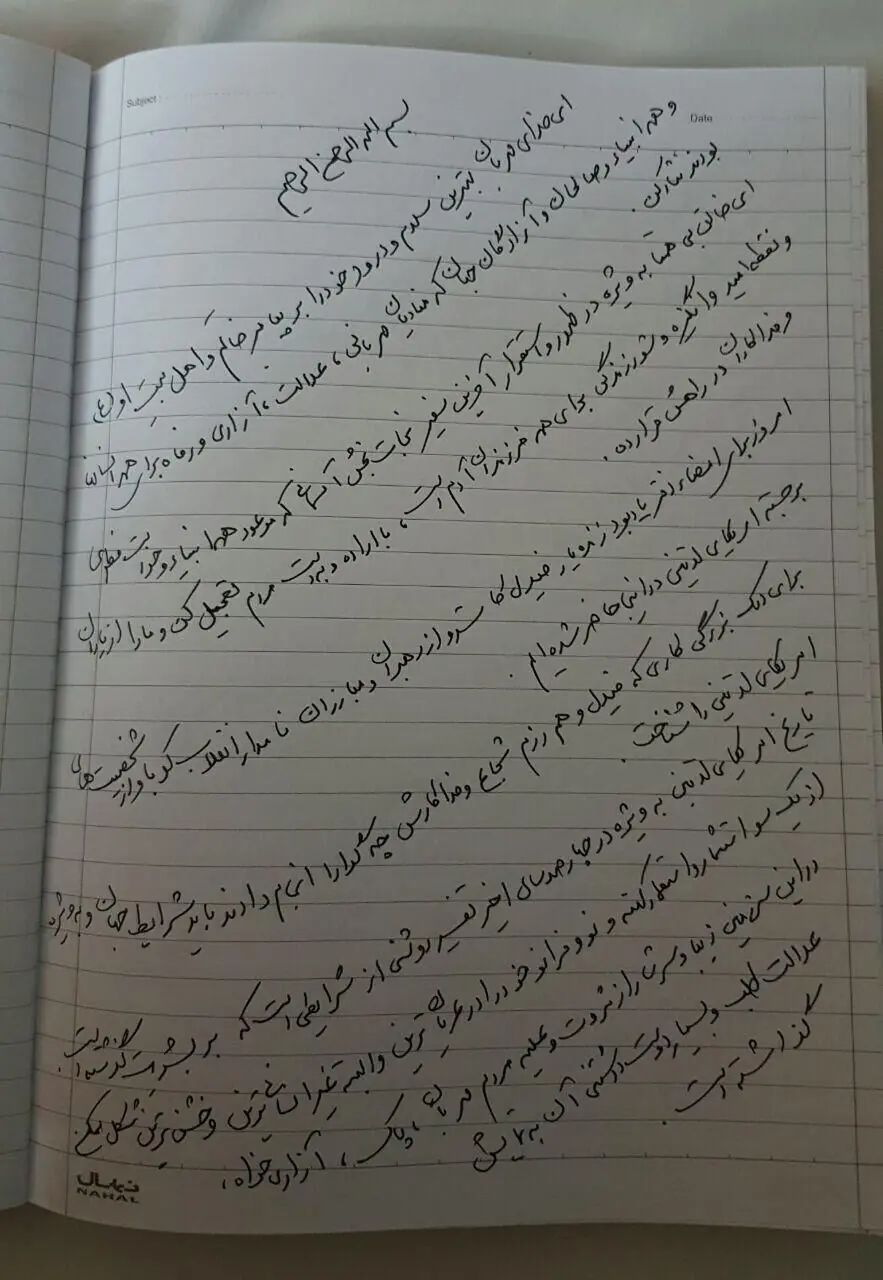 Subject:
Date
بسم الله الرحمن الرحیم
ای خدای مهربان بهترین سلام و درود خود را بر پیامبر خاتم و اهل بیت او (ع)
و همه انبیاء و صالحان و آزادگان جهان که منادیان مهربانی، عدالت، آزادی و رفاه برای همه انسانها
بودند نثار کن.
ای خالق بی همتا به ویژه در ظهور و استقرار آخرین سفیر نجات بخش آسمانی که موعود همه انبیاء و خواست فطری
و نقطه امید و انگیزه و شور زندگی برای همه فرزندان آدم است، با اراده و تربیت مردم تعجیل کن و ما را از یاران
و فداکاران در راهش قرار ده.
امروز برای امضاء دفتر یادبود زنده یاد فیدل کاسترو از رهبران و مبارزان نامدار انقلاب کوبا و از شخصیت های
برجسته امریکای لاتینی در اینجا حاضر شده ام.
برای درک بزرگی کاری که فیدل و هم رزم شجاع و فداکارش چه گوارا انجام دادند باید شرایط جهان و به ویژه
امریکای لاتینی را شناخت.
تاریخ امریکای لاتینی به ویژه در چهارصد سال اخیر تفسیر روشنی از شرایطی است که بر بشریت گذشته است.
از یک سو استثمار و استعمار کهنه و نو و فرانو خود را در عریان ترین و البته غیر انسانی ترین و خشن ترین شکل ممکن
در این سرزمین زیبا و سرشار از ثروت و علیه مردم مهربان، پاک، آزادی خواه،
عدالت طلب و بسیار دوست داشتنی آن به نمایش
گذاشته است.
نهال
NAHAL